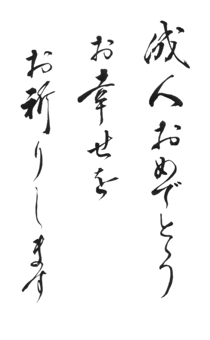 成人おめでとう
お幸せを
お祈りします